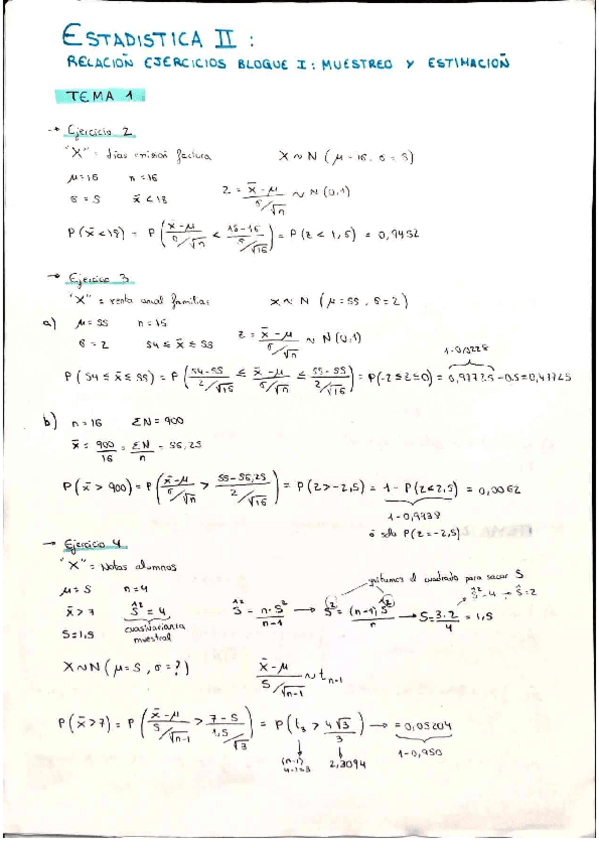 ESTADISTICA II :
RELACIOÑ EJERCICIOS BLOQUE I : MUESTREO Y ESTIMACIOÑ
TEMA 1 :
→ Ejercicio 2
"X" = días emisión factura X ~ N (μ = 16, σ = 5)
μ = 16 n = 16
σ = 5 x̄ < 18 Z = (x̄ - μ)/(σ/√n) ~ N (0,1)
P(x̄ < 18) = P((x̄ - μ)/(σ/√n) < (18 - 16)/(5/√16)) = P(Z < 1,5) = 0,9452
→ Ejercicio 3
"X" = renta anual familias X ~ N (μ = 55, σ = 2)
a) μ = 55 n = 15
σ = 2 54 ≤ x̄ ≤ 55 Z = (x̄ - μ)/(σ/√n) ~ N (0,1)
1 - 0,0228
P(54 ≤ x̄ ≤ 55) = P((54-55)/(2/√16) ≤ (x̄ - μ)/(σ/√n) ≤ (55-55)/(2/√16)) = P(-2 ≤ Z ≤ 0) = 0,97725 - 0.5 = 0,47725
b) n = 16 ΣN = 900
x̄ = 900/16 = ΣN/n = 56,25
P(x̄ > 900) = P((x̄ - μ)/(σ/√n) > (55 - 56,25)/(2/√16)) = P(Z > -2,5) = 1 - P(Z < 2,5) = 0,0062
1 - 0,9938
ó solo P(Z = -2,5)
→ Ejercicio 4
"X" = Notas alumnos
quitamos el cuadrado para sacar S
μ = 5 n = 4
Ŝ² = 4 → Ŝ = 2
x̄ > 7 Ŝ² = 4 Ŝ² = n·S²/(n-1) → S² = (n-1) Ŝ²/n → S = 3·2/4 = 1,5
S = 1,5 cuasivarianza muestral
X ~ N (μ = 5, σ = ?) (x̄ - μ)/(S/√n-1) ~ t n-1
P(x̄ > 7) = P((x̄ - μ)/(S/√n-1) > (7 - 5)/(1,5/√3)) = P(t₃ > 4√3/3) → = 0,05204
(n-1) 4-1=3 2,3094 1 - 0,950